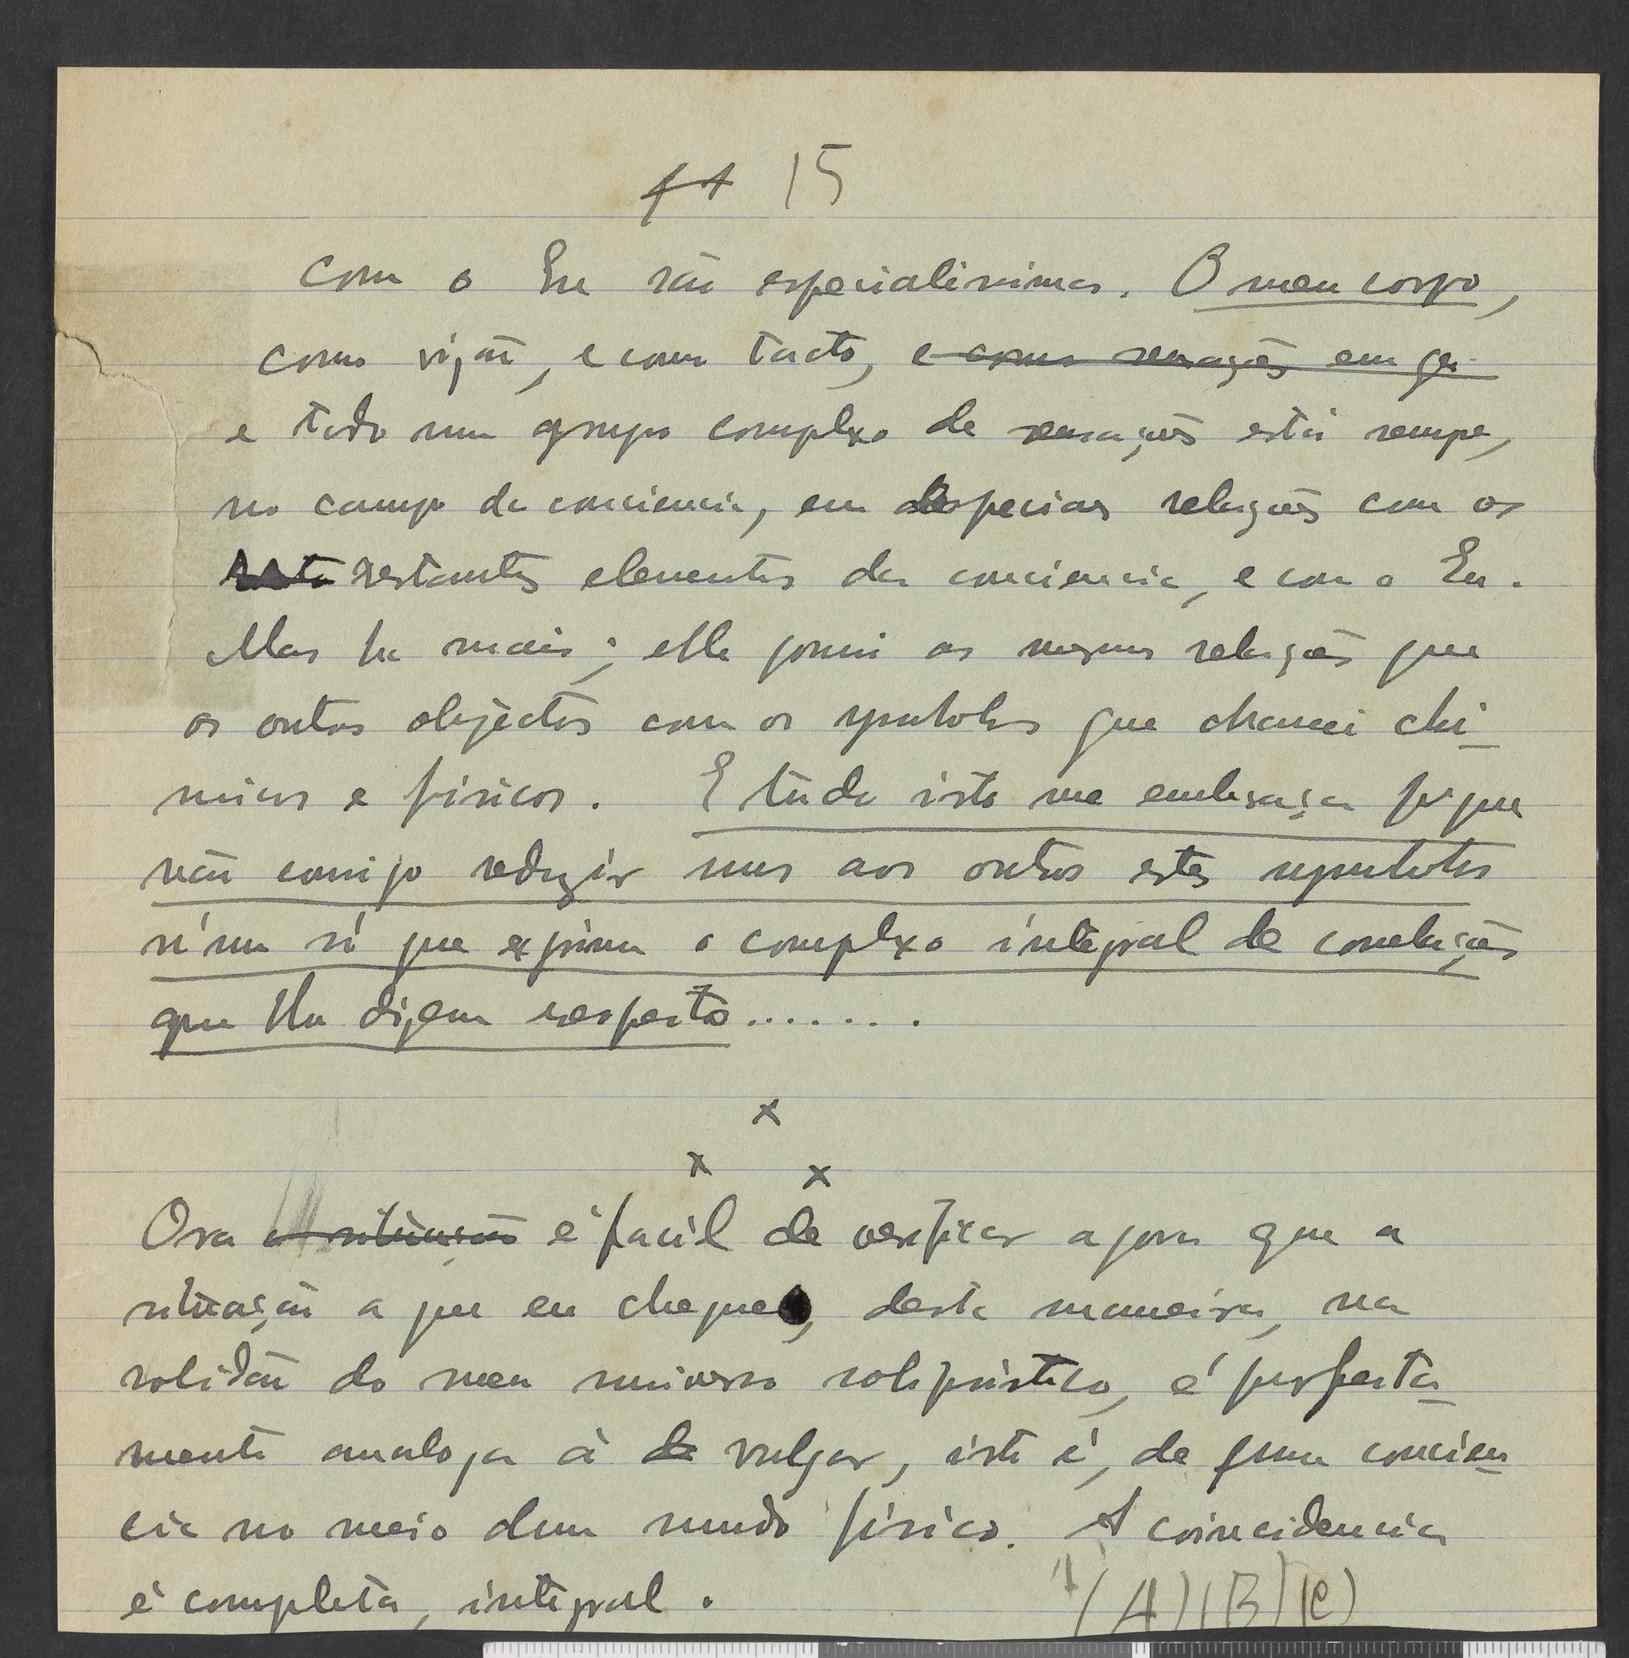 15
com o Eu são especialissimas. O meu corpo,
como visão, e como tacto, e como sensações em ge-
e todo um grupo complexo de sensações está sempre,
no campo da conciencia, em especiaes relações com os
restantes elementos da conciencia, e com o Eu.
Mas ha mais; elle possui as mesmas relações que
os outros objectos com os symbolos que chamei chi-
micos e fisicos. E tudo isto me embaraça porque
não consigo reduzir uns aos outros estes symbolos
n'um só que exprima o complexo integral de correlações
que lhe dizem respeito........
x
x x
Ora a situação é facil de verificar agora que a
situação a que eu cheguei, desta maneira, na
solidão do meu universo solipsistico, é perfeita-
mente analoga à de vulgar, isto é, de uma concien-
cia no meio dum mundo fisico. A coincidencia
é completa, integral.
(A) (B) (C)